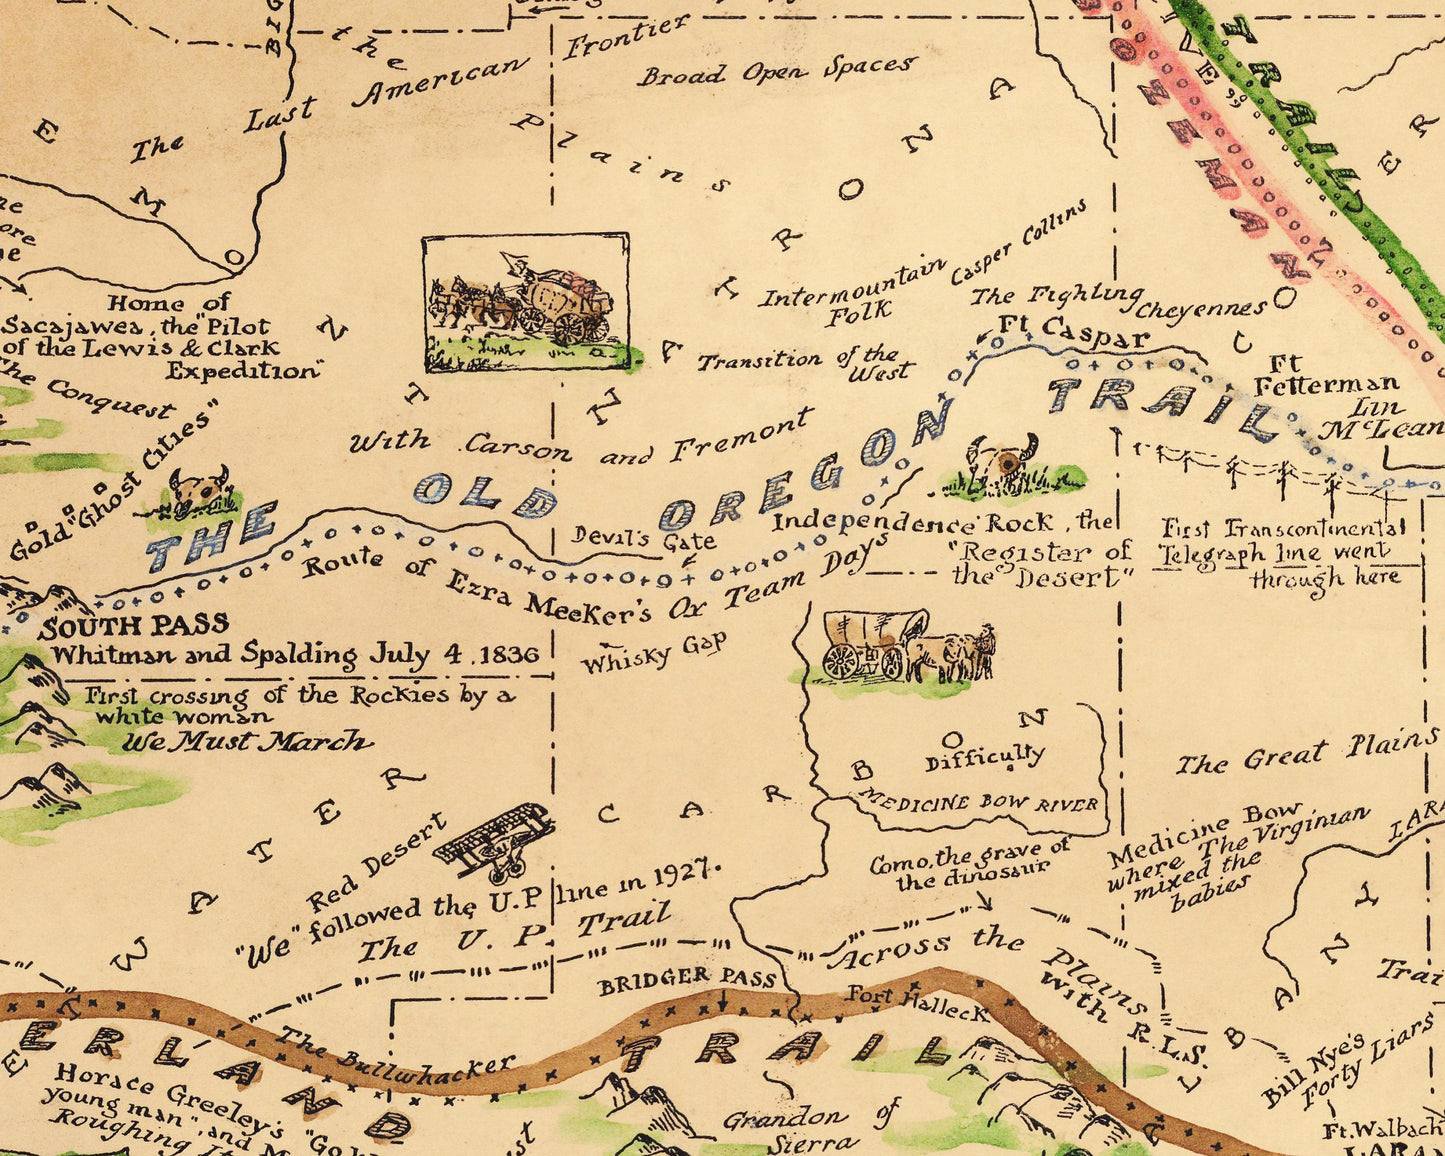 BIG
the
Frontier
American
The Last
Broad Open Spaces
Plains
BOZEMAN
TRAIL
FREMONT
NATRONA
CON
Casper Collins
Intermountain
Folk
The Fighting
Cheyennes
Ft. Caspar
Transition of the
West
Ft
Fetterman
Lin
McLean
Home of
Sacajawea, the "Pilot
of the Lewis & Clark
Expedition"
The Conquest
Gold "Ghost Cities"
With Carson and Fremont
THE OLD OREGON TRAIL
Devil's Gate
Independence Rock, the
"Register of
the Desert"
First Transcontinental
Telegraph line went
through here
Route of Ezra Meeker's Ox Team Days
SOUTH PASS
Whitman and Spalding July 4, 1836
First crossing of the Rockies by a
white woman
We Must March
Whisky Gap
CARBON
Difficulty
MEDICINE BOW RIVER
The Great Plains
Medicine Bow
where The Virginian
mixed the
babies
LARA
Como, the grave of
the dinosaur
SWEETWATER
Red Desert
"We" followed the U.P line in 1927.
The U. P. Trail
Across the Plains
With R.L.S.
ALBANY
Trai
BRIDGER PASS
Fort Halleck
ERLAND TRAIL
The Bullwhacker
Horace Greeley's "Go W
young man", and M
Roughing It
Grandon of
Sierra
Bill Nye's
Forty Liars
Ft. Walbach
LARAM